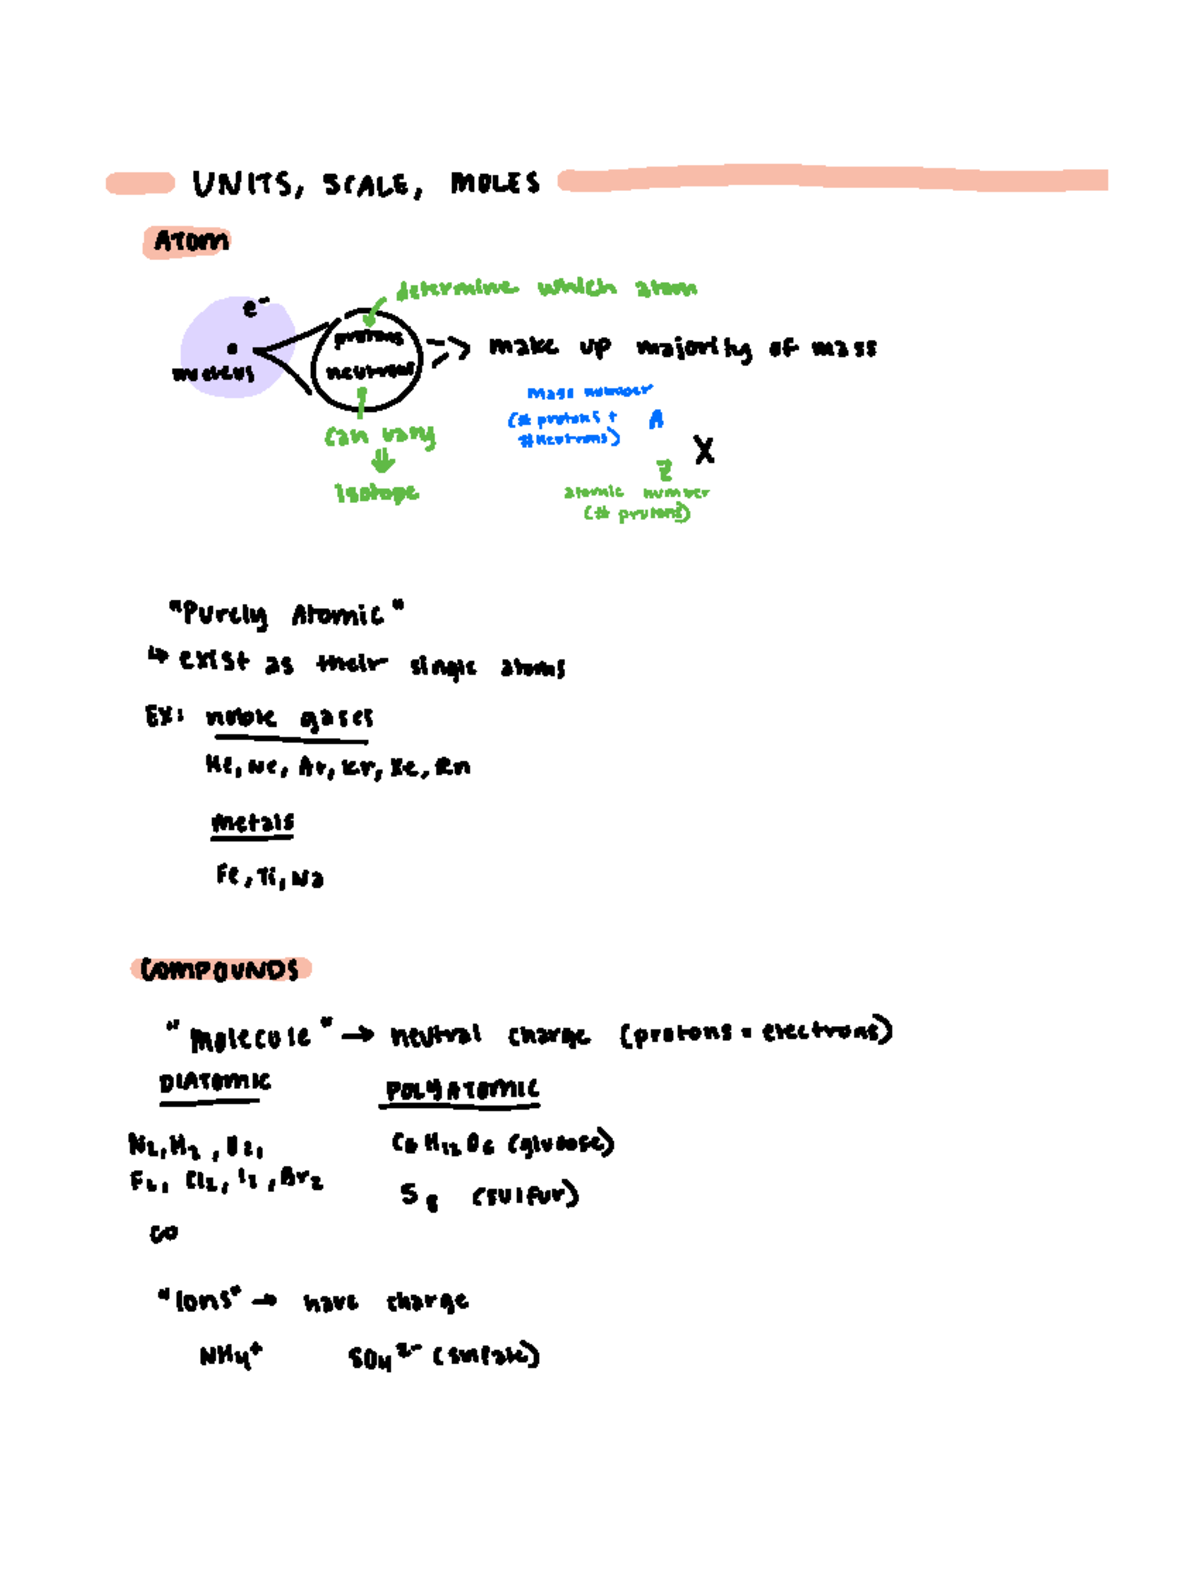 UNITS, SCALE, MOLES
ATOM
determine which atom
e⁻
protons
nucleus
neutrons
make up majority of mass
mass number
(# protons +
#neutrons)
A
X
can vary
Z
isotope
atomic number
(# protons)
"Purely Atomic"
↳ exist as their single atoms
EX: noble gases
He, Ne, Ar, Kr, Xe, Rn
metals
Fe, Ti, Na
COMPOUNDS
"molecule" → neutral charge (protons = electrons)
DIATOMIC
POLYATOMIC
N₂, H₂, O₂,
C₆H₁₂O₆ (glucose)
F₂, Cl₂, I₂, Br₂
S₈ (sulfur)
CO
"Ions" → have charge
NH₄⁺ SO₄²⁻ (sulfate)